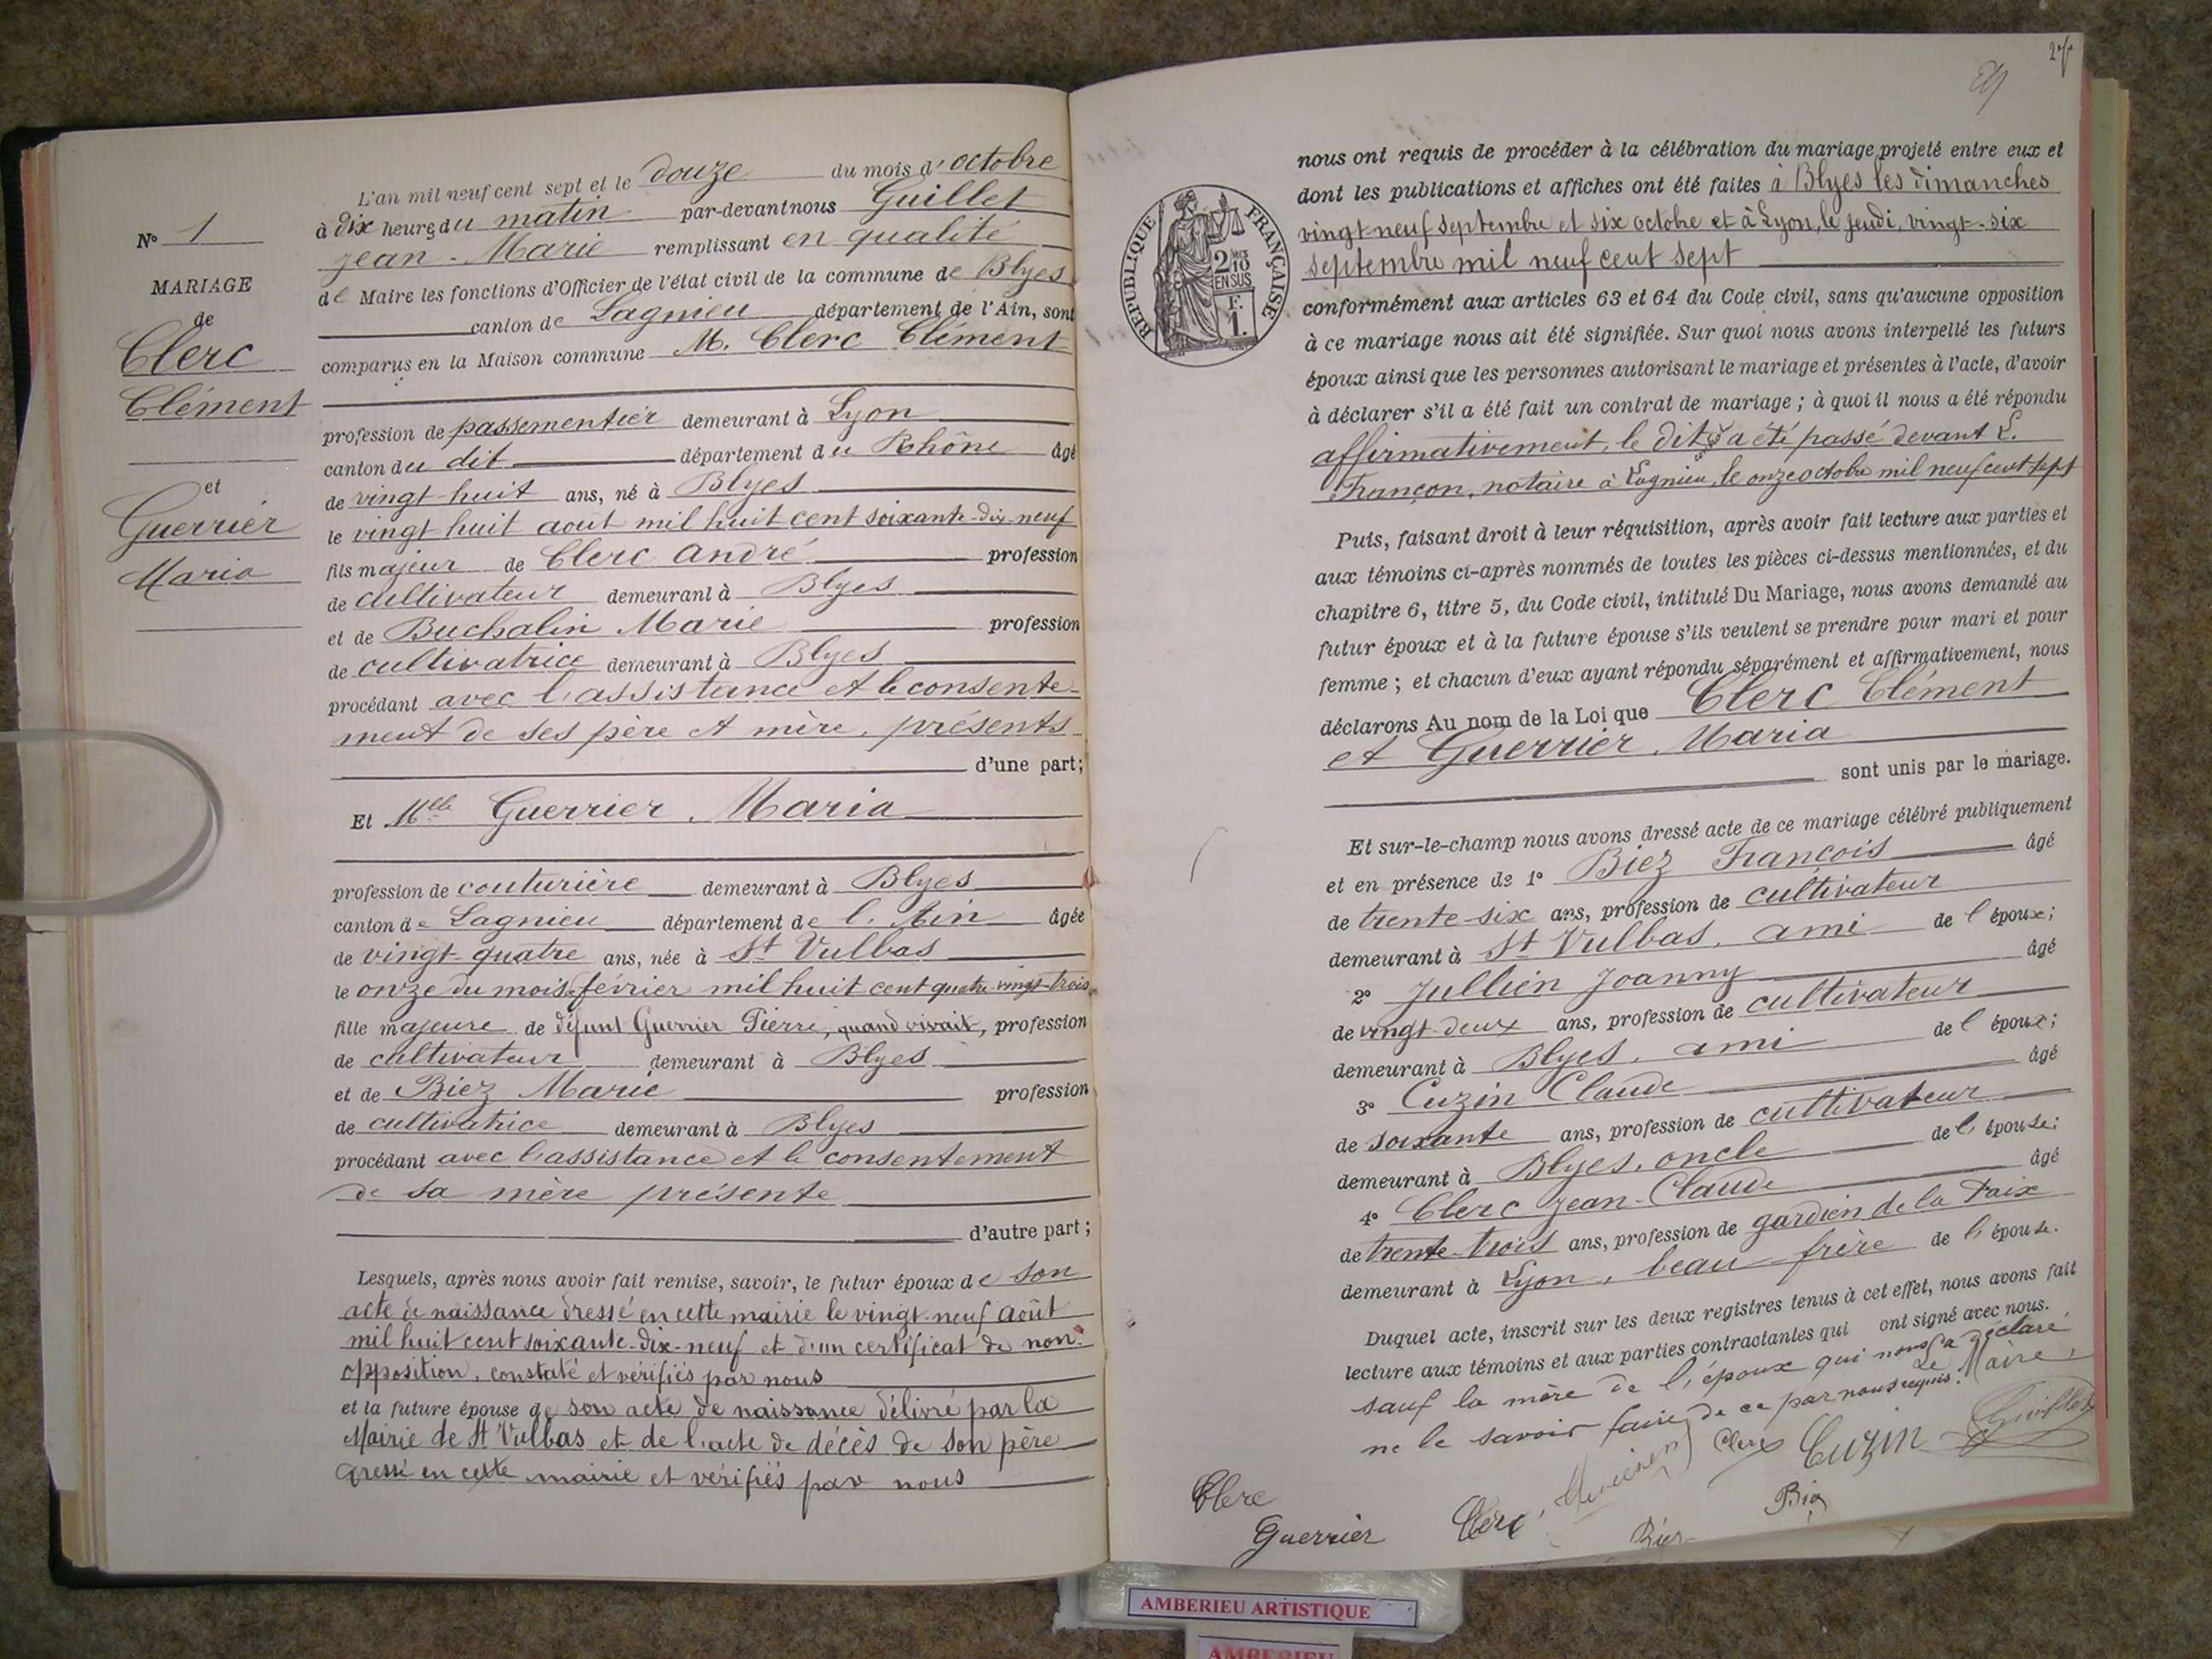 N° 1
MARIAGE
de
Clerc
Clément
et
Guerrier
Maria
L'an mil neuf cent sept et le douze du mois d'octobre
à dix heures du matin par-devant nous Guillet
Jean-Marie remplissant en qualité
de Maire les fonctions d'Officier de l'état civil de la commune de Blyes
canton de Lagnieu département de l'Ain, sont
comparus en la Maison commune M. Clerc Clément
profession de passementier demeurant à Lyon
canton du dit département du Rhône âgé
de vingt huit ans, né à Blyes
le vingt huit aout mil huit cent soixante-dix-neuf
fils majeur de Clerc André profession
de cultivateur demeurant à Blyes
et de Buchalin Marie profession
de cultivatrice demeurant à Blyes
procédant avec l'assistance et le consente-
ment de ses père et mère, présents
d'une part;
Et Mlle Guerrier, Maria
profession de couturière demeurant à Blyes
canton de Lagnieu département de l'Ain âgée
de vingt-quatre ans, née à St Vulbas
le onze du mois février mil huit cent quatre vingt-trois
fille majeure de défunt Guerrier Pierre, quand vivait, profession
de cultivateur demeurant à Blyes
et de Biez Marie profession
de cultivatrice demeurant à Blyes
procédant avec l'assistance et le consentement
de sa mère présente
d'autre part;
Lesquels, après nous avoir fait remise, savoir, le futur époux de son
acte de naissance dressé en cette mairie le vingt-neuf août
mil huit cent soixante-dix-neuf et d'un certificat de non-
opposition, constaté et vérifiés par nous
et la future épouse de son acte de naissance délivré par la
Mairie de St Vulbas et de l'acte de décès de son père
dressé en cette mairie et vérifiés par nous
29
RÉPUBLIQUE FRANÇAISE
2/10
EN SUS
F.
1.
nous ont requis de procéder à la célébration du mariage projeté entre eux et
dont les publications et affiches ont été faites à Blyes les dimanches
vingt-neuf septembre et six octobre et à Lyon, le jeudi, vingt-six
septembre mil neuf cent sept
conformément aux articles 63 et 64 du Code civil, sans qu'aucune opposition
à ce mariage nous ait été signifiée. Sur quoi nous avons interpellé les futurs
époux ainsi que les personnes autorisant le mariage et présentes à l'acte, d'avoir
à déclarer s'il a été fait un contrat de mariage; à quoi il nous a été répondu
affirmativement, le dit a été passé devant
Françon, notaire à Lagnieu, le onze octobre mil neuf cent sept
Puis, faisant droit à leur réquisition, après avoir fait lecture aux parties et
aux témoins ci-après nommés de toutes les pièces ci-dessus mentionnées, et du
chapitre 6, titre 5, du Code civil, intitulé Du Mariage, nous avons demandé au
futur époux et à la future épouse s'ils veulent se prendre pour mari et pour
femme; et chacun d'eux ayant répondu séparément et affirmativement, nous
déclarons Au nom de la Loi que Clerc Clément
et Guerrier, Maria
sont unis par le mariage.
Et sur-le-champ nous avons dressé acte de ce mariage célébré publiquement
et en présence de 1° Biez François âgé
de trente-six ans, profession de cultivateur
demeurant à St Vulbas, ami de l'époux;
2° Jullien Joanny âgé
de vingt-deux ans, profession de cultivateur
demeurant à Blyes, ami de l'époux;
3° Cuzin Claude âgé
de soixante ans, profession de cultivateur
demeurant à Blyes, oncle de l'épouse;
4° Clerc Jean-Claude âgé
de trente-trois ans, profession de gardien de la Paix
demeurant à Lyon, beau-frère de l'épouse.
Duquel acte, inscrit sur les deux registres tenus à cet effet, nous avons fait
lecture aux témoins et aux parties contractantes qui ont signé avec nous.
sauf la mère de l'époux qui nous a déclaré
ne le savoir faire, de ce par nous requis. Le Maire,
Clerc Cuzin Guillet
Clerc Clerc Biez
Guerrier Biez
AMBERIEU ARTISTIQUE
AMBERIEU